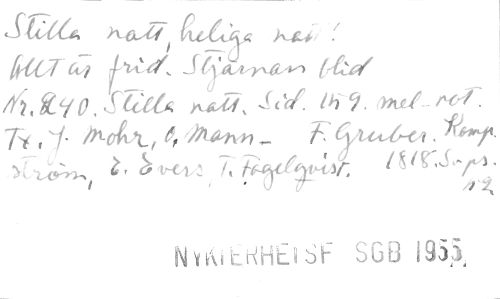 Stilla natt, heliga natt!
Allt är frid. Stjärnan blid
Nr. 240. Stilla natt. Sid. 159. mel-not.
Tx. J. Mohr, O. Mann- F. Gruber. Komp.
ström, E. Evers, T. Fogelqvist. 1818. S.
NYKTERHETSF SGB 1955